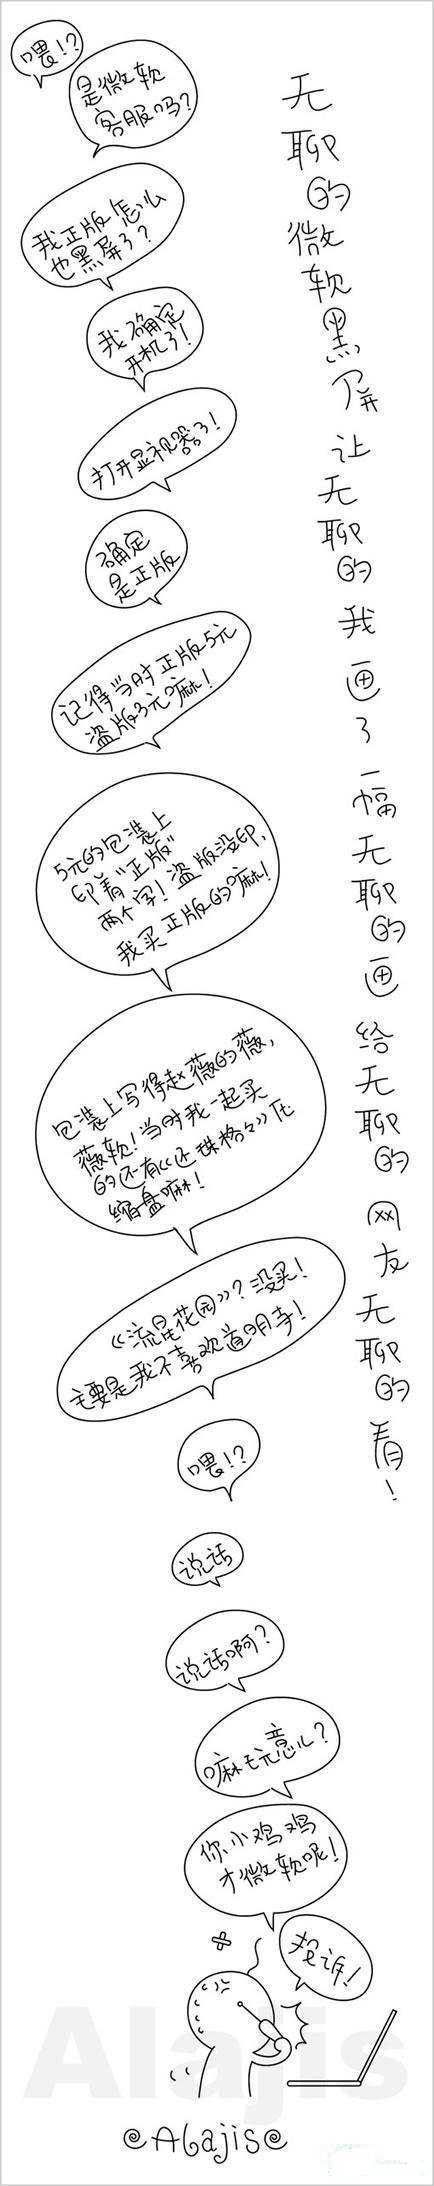 喂!?
是微软
客服吗?
我正版怎么
也黑屏了?
我确定
开机了!
打开显视器了!
确定
是正版
记得当时正版5元
盗版3元嘛!
5元的包装上
印着“正版”
两个字!盗版没印,
我买正版的嘛!
包装上写得赵薇的薇,
薇软!当时我一起买
的还有《还珠格々》压
缩盘嘛!
《流星花园》?没买!
主要是我不喜欢道明寺!
喂!?
说话
说话啊?
嘛玩意儿?
你小鸡鸡
才微软呢!
投诉!
无聊的微软黑屏让无聊的我画了一幅无聊的画给无聊的网友无聊的看!
Alajis
@Alajis@